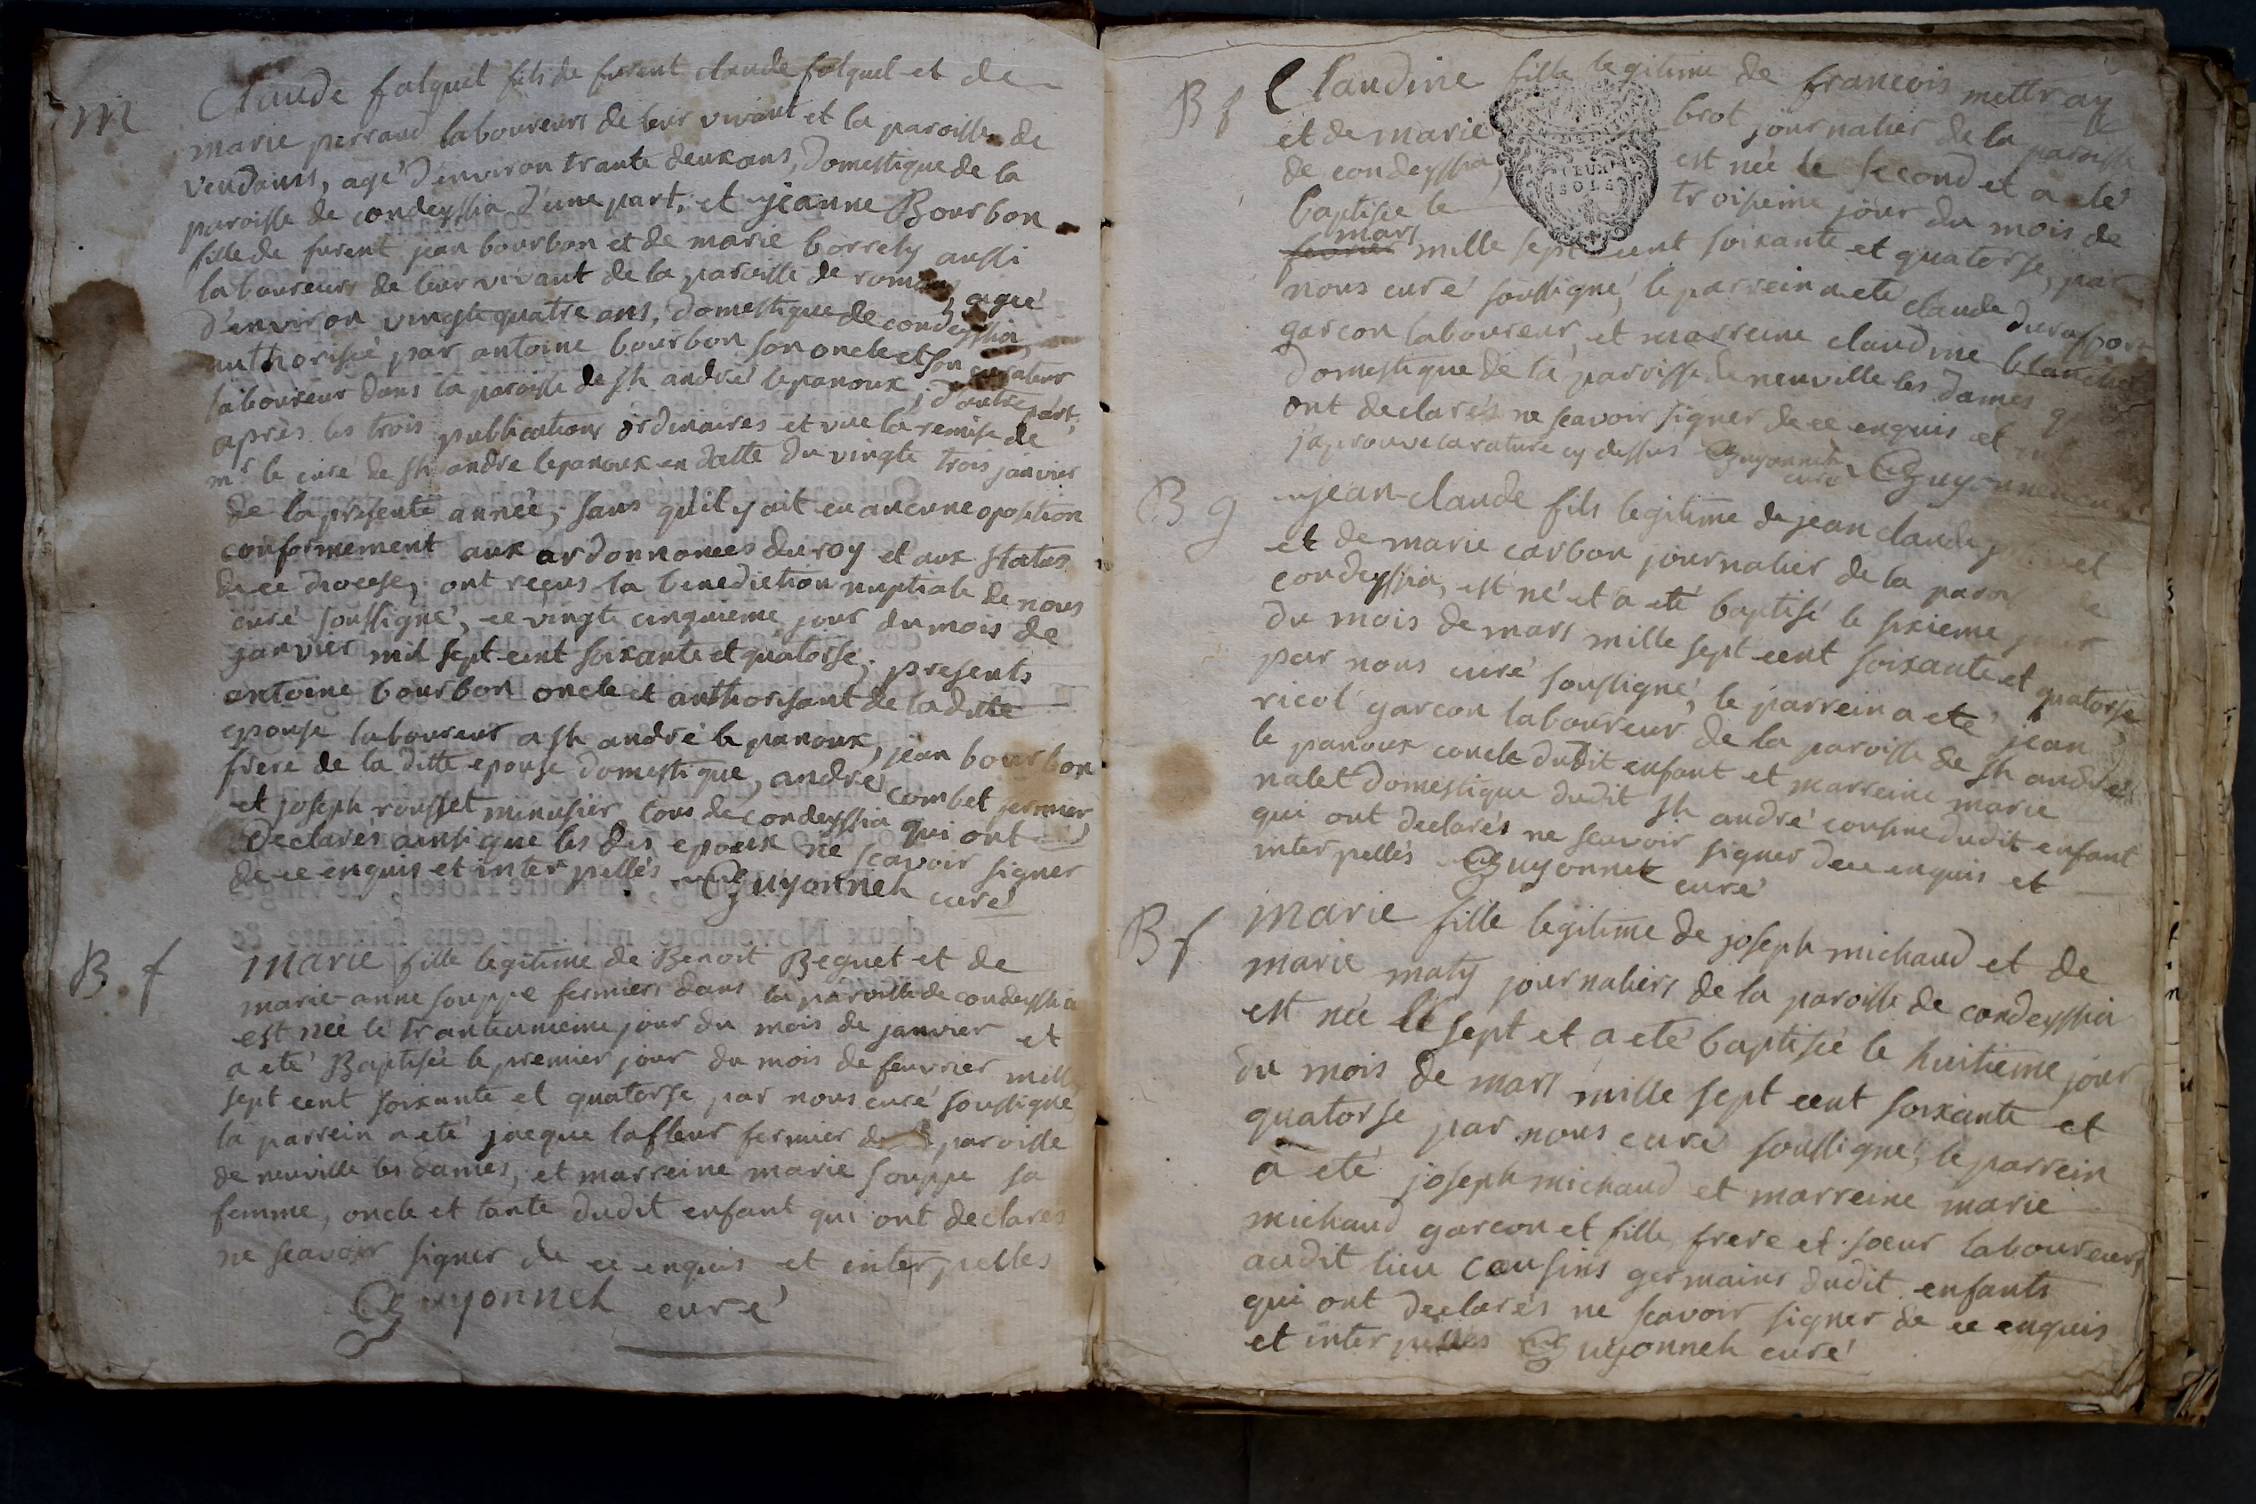 M
Claude falquet fils de furent claude falquet et de
marie perraud laboureurs de leur vivant et la paroisse de
Vendains, agé d'environ trante deux ans, domestique de la
paroisse de condeyssia d'une part, et jeanne Bourbon
fille de furent jean bourbon et de marie borrely aussi
laboureurs de leur vivant de la paroisse de romans, agée
d'environ vingte quatre ans, domestique de condeyssia
authorisée par antoine bourbon son oncle et son curateur
laboureur dans la paroisse de st andré lepanoux, d'autre part,
après les trois publications ordinaires et vue la remise de
mr le cure de st andre lepanoux en datte du vingte trois janvier
de la presente année, sans qu'il y ait eu aucune oposition
conformement aux ardonnances du roy et aux status
de ce diocese, ont reçus la benediction nuptiale de nous
curé soussigné, ce vingte cinquieme jour du mois de
janvier mil sept cent soixante et quatorse, presents
antoine bourbon oncle et authorisant de la ditte
epouse laboureur a st andré le panoux, jean bourbon
frere de la ditte epouse domestique, andré combet fermier
et joseph rousset minusier tous de condeyssia qui ont
declarés ainsi que les dis epoux ne scavoir signer
de ce enquis et interpellés Guyonnet curé
B. f
marie fille legitime de Benoit Beguet et de
marie-anne souppe fermiers dans la paroisse de condeyssia
est née le tranteunieme jour du mois de janvier et
a eté Baptisée le premier jour du mois de feuvrier mille
sept cent soixante et quatorse par nous curé soussigné
la parrein a eté jacque lafleur fermier de paroisse
de neuville les dames, et marreine marie souppe sa
femme, oncle et tante dudit enfant qui ont declares
ne scavoir signer de ce enquis et interpelles
Guyonnet curé
B f
Claudine fille legitime de francois mettray
et de marie brot journalier de la paroisse
de condeyssia, est née le second et a eté
baptisée le troisieme jour du mois de
mars
fevrier mille sept cent soixante et quatorse, par
nous curé soussigné, le parrein a eté claude
garcon laboureur, et marreine claudine
domestique de la paroisse de neuville les dames
ont declarés ne scavoir signer de ce enquis et
j'aprouve la rature cy dessus Guyonnet curé Guyonnet
B g
jean-claude fils legitime de jean claude
et de marie carbon journalier de la
condeyssia, est né et a eté baptisé le sixieme jour
du mois de mars mille sept cent soixante et quatorse
par nous curé soussigné, le parrein a eté jean
ricol garcon laboureur de la paroisse de st andré
le panoux concle dudit enfant et marreine marie
nalet domestique dudit st andré cousine dudit enfant
qui ont declarés ne scavoir signer de ce enquis et
interpellés Guyonnet curé
B f
Marie fille legitime de joseph michaud et de
marie maty journaliers de la paroisse de condeyssia
est née le sept et a eté baptisée le huitieme jour
du mois de mars mille sept cent soixante et
quatorse par nous curé soussigné, le parrein
a eté joseph michaud et marreine marie
michaud garcon et fille, frere et soeur laboureurs
audit lieu cousins germains dudit enfants
qui ont declarés ne scavoir signer de ce enquis
et interpelles Guyonnet curé